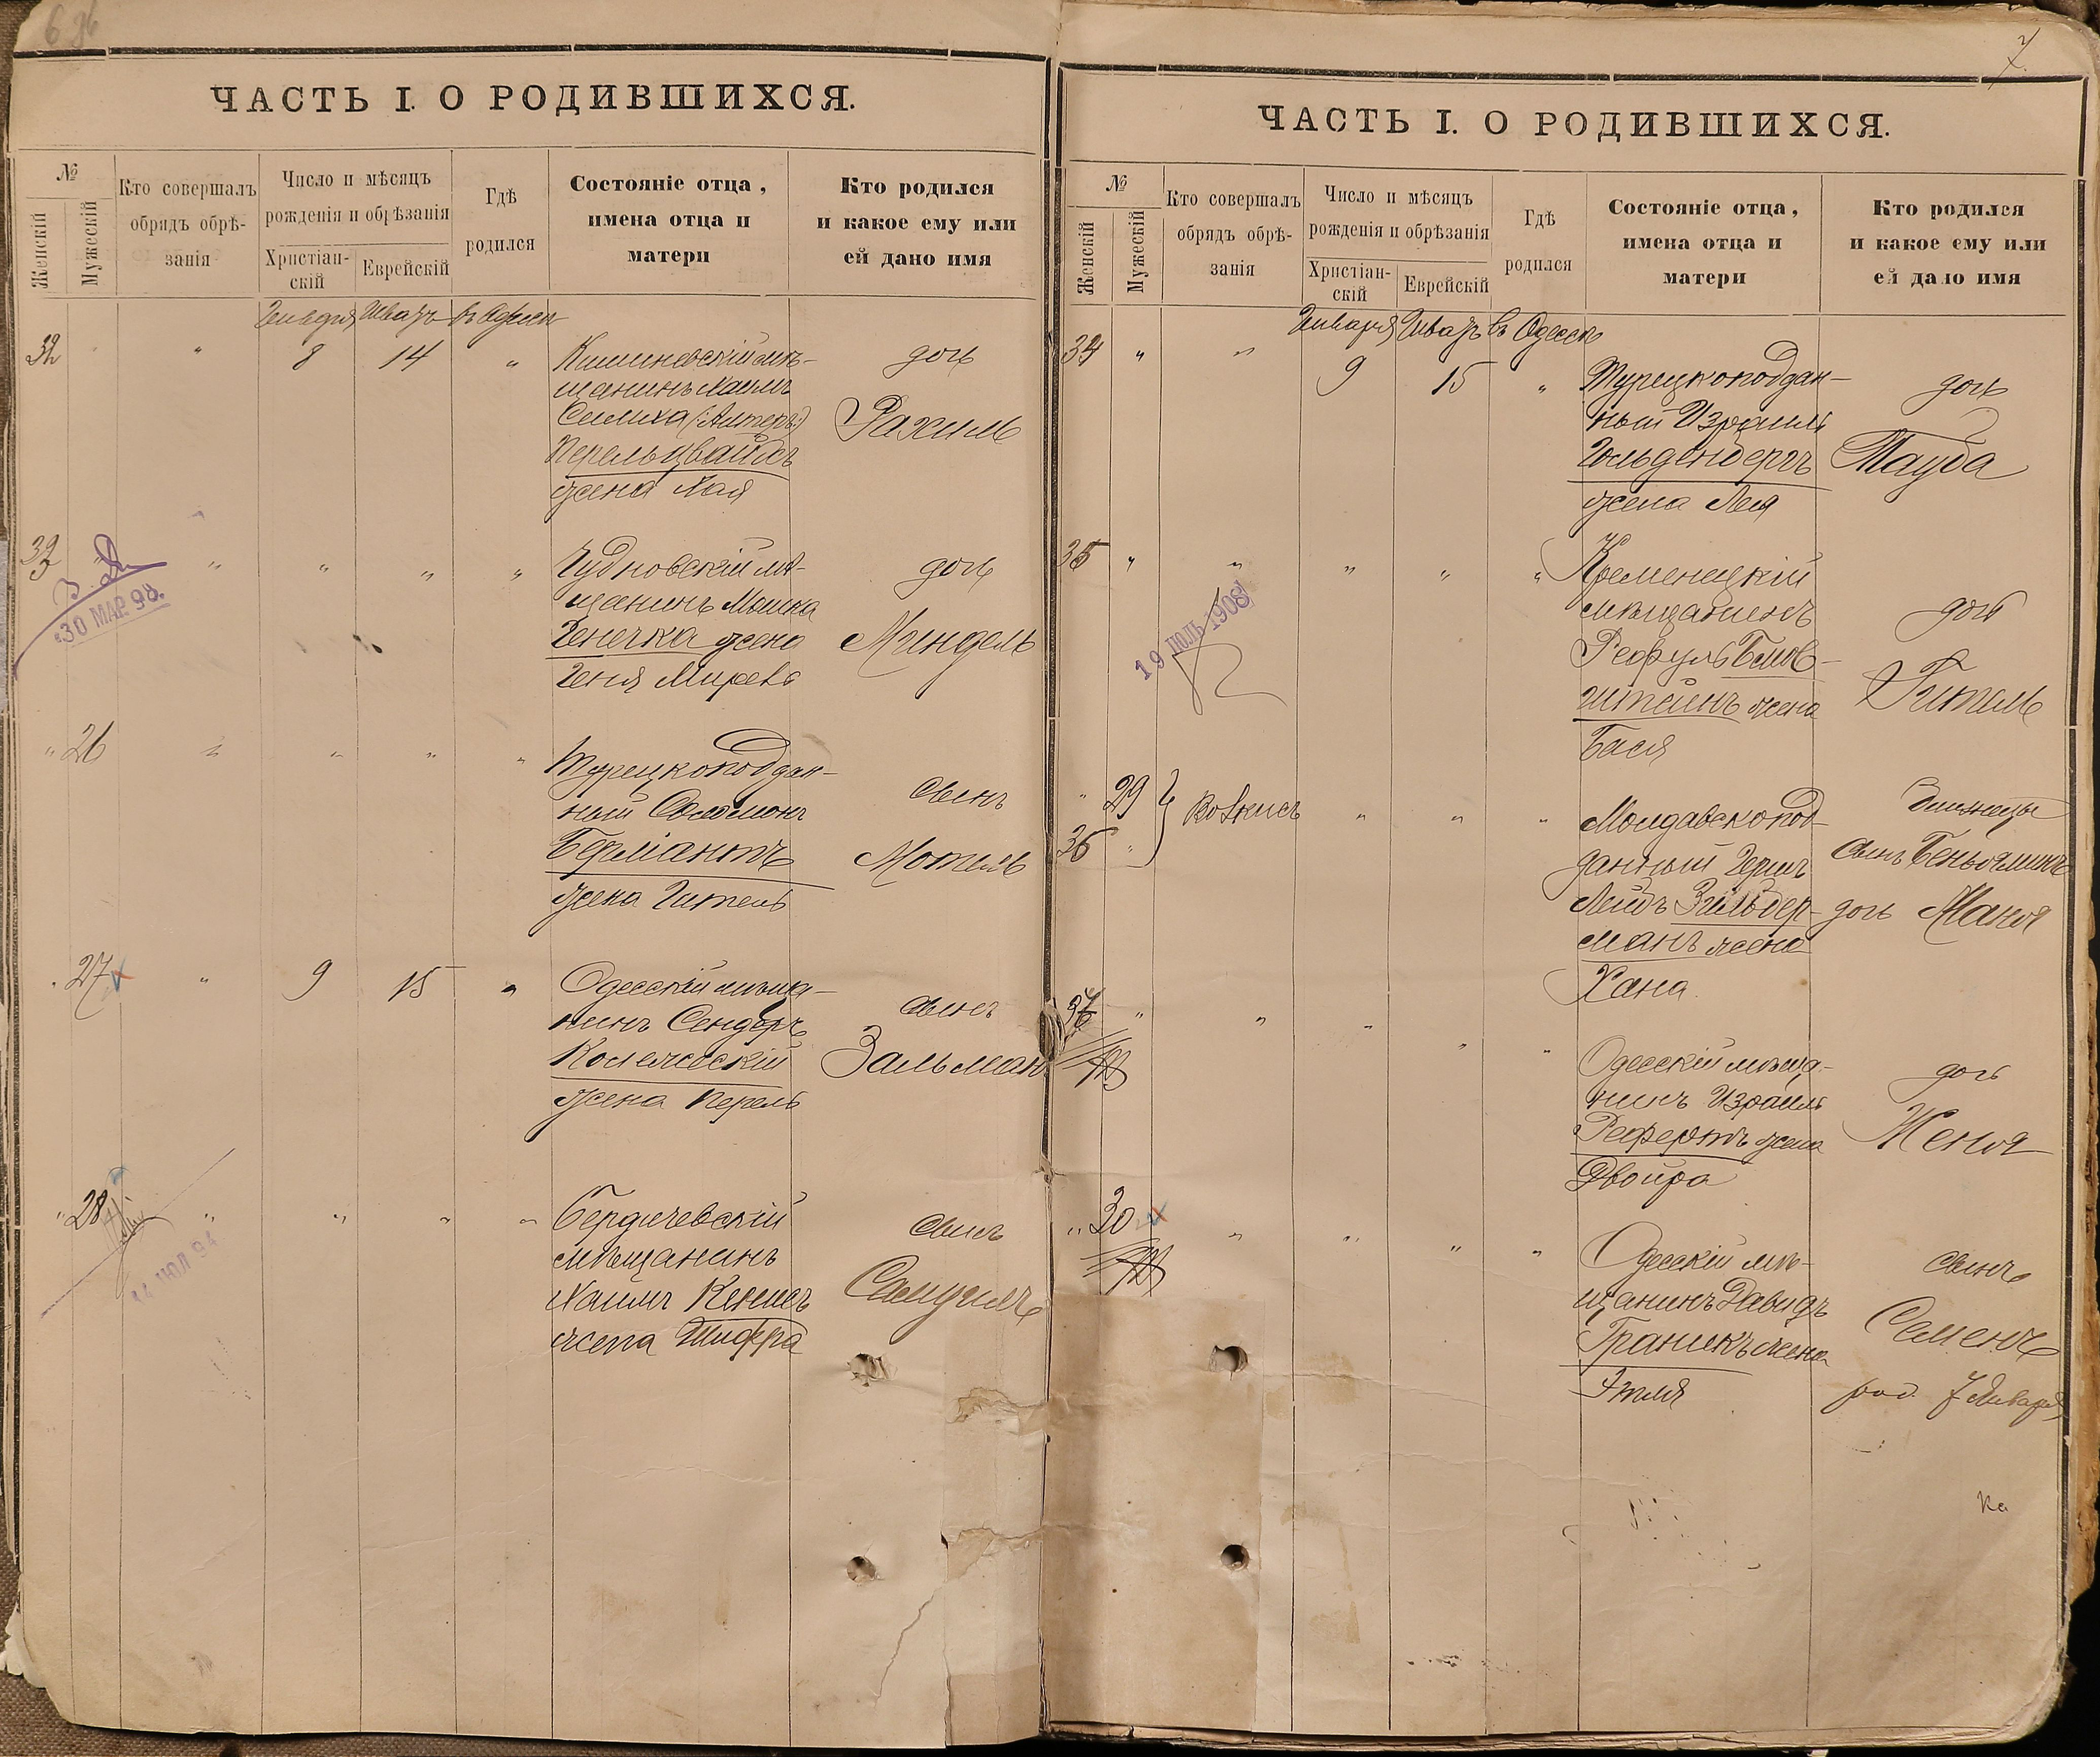 ЧАСТЬ I. О РОДИВШИХСЯ.
№
Женскій
Мужескій
Кто совершалъ обрядъ обрѣ-
занія
Число и мѣсяцъ
рожденія и обрѣзанія
Христіан-
скій
Еврейскій
Гдѣ
родился
Состояніе отца,
имена отца и
матери
Кто родился
и какое ему или
ей дано имя
Января Шватъ въ Одессѣ
32 " " 8 14 "
Кишиневскій мѣ-
щанинъ Хаимъ
Перельцвайгъ
жена Хая
дочь
Рахиль
33 " " " "
30 МАР. 98.
Чудновскій мѣ-
щанинъ Мошка
Генечка жена
Геня Мирева
дочь
Миндель
" 26 " " " "
Турецкоподдан-
ный Соломонъ
Берліантъ
жена Гитель
сынъ
Мотель
" 27 " 9 15 "
Одесскій мѣща-
нинъ Сендеръ
жена Перель
сынъ
Зальман
" 28 " " " "
14 ИЮЛ 94
Бердичевскій
мѣщанинъ
Хаимъ
жена Шифра
сынъ
Самуилъ
7.
ЧАСТЬ I. О РОДИВШИХСЯ.
№
Женскій
Мужескій
Кто совершалъ
обрядъ обрѣ-
занія
Число и мѣсяцъ
рожденія и обрѣзанія
Христіан-
скій
Еврейскій
Гдѣ
родился
Состояніе отца,
имена отца и
матери
Кто родился
и какое ему или
ей дано имя
Января Шватъ въ Одессѣ
34 " " 9 15 "
Турецкоподдан-
ный Израиль
Гольденбергъ
жена Лея
дочь
Тауба
35 " " " " "
19 ИЮЛЬ 1908
Кременецкій
мѣщанинъ
штейнъ жена
Бася
дочь
Гитель
" 29
36 "
" " "
Молдавскопод-
данный Герш
Лейбъ Зильбер-
манъ жена
Хана
Близнецы
сынъ Беньяминъ
дочь Маня
37 " " " " "
Одесскій мѣща-
нинъ Израиль
Рефертъ жена
Двойра
дочь
Женя
" 30 " " " "
Одесскій мѣ-
щанинъ Давидъ
Граникъ жена
Этля
сынъ
Семенъ
род. 7 Января